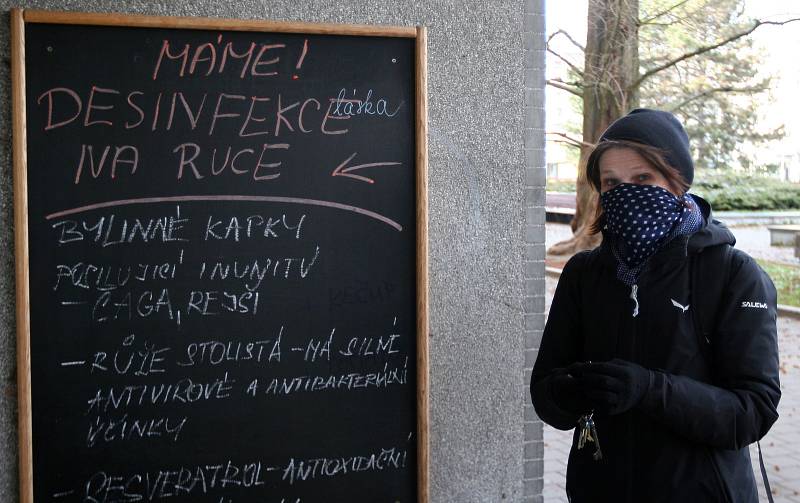 MÁME!
DESINFEKCE láska
NA RUCE ←
BYLINNÉ KAPKY
POSILUJICÍ INUNITU
- ČAGA, REJŠI
- RŮŽE STOLISTÁ - NÁ SILNÉ
ANTIVIROVÉ A ANTIBAKTERIÁLNÍ
ÚČINKY
- RESVERATROL - ANTIOXIDAČNÍ
SALEWA